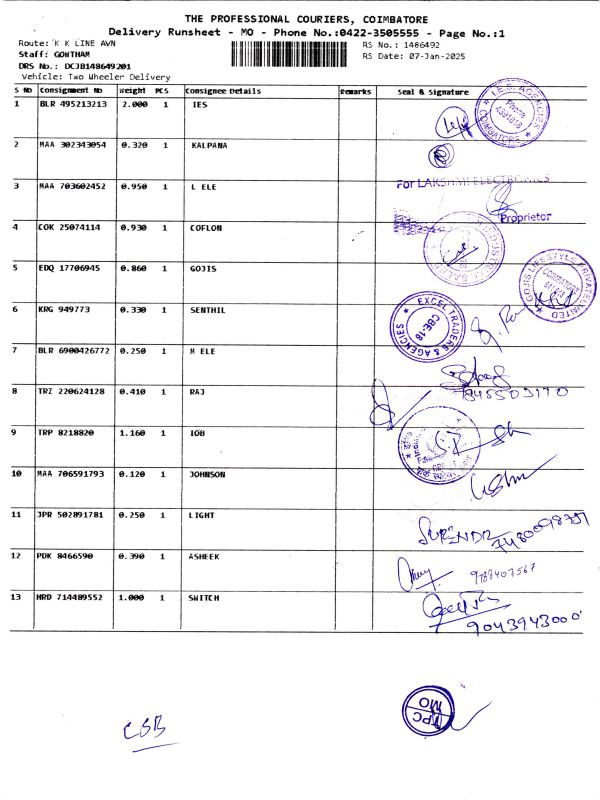 THE PROFESSIONAL COURIERS, COIMBATORE
Delivery Runsheet - MO - Phone No.:0422-3505555 - Page No.:1
Route: K K LINE AVN
Staff: GOWTHAM
DRS No.: DCJB148649201
Vehicle: Two Wheeler Delivery
RS No.: 1486492
RS Date: 07-Jan-2025
S No Consignment No Weight PCS Consignee Details Remarks Seal & Signature
1 BLR 495213213 2.000 1 IES
I.E.S. AGENCIES
Phone
COIMBATORE
2 MAA 302343054 0.320 1 KALPANA
3 MAA 703602452 0.950 1 L ELE
For LAKSHMI ELECTRONICS
Proprietor
4 COK 25074114 0.930 1 COFLON
5 EDQ 17706945 0.860 1 GOJIS
GOJIS LIFESTYLE PRIVATE LIMITED
COIMBATORE
6 KRG 949773 0.330 1 SENTHIL
EXCEL TRADERS & AGENCIES
CBE-18
7 BLR 6900426772 0.250 1 M ELE
8 TRZ 220624128 0.410 1 RAJ
9 TRP 8218820 1.160 1 IOB
10 MAA 706591793 0.120 1 JOHNSON
11 JPR 502891781 0.250 1 LIGHT
12 PDK 8466590 0.390 1 ASHEEK
9788407567
13 HRD 714489552 1.000 1 SWITCH
9043943000
TPC
MO
CSB